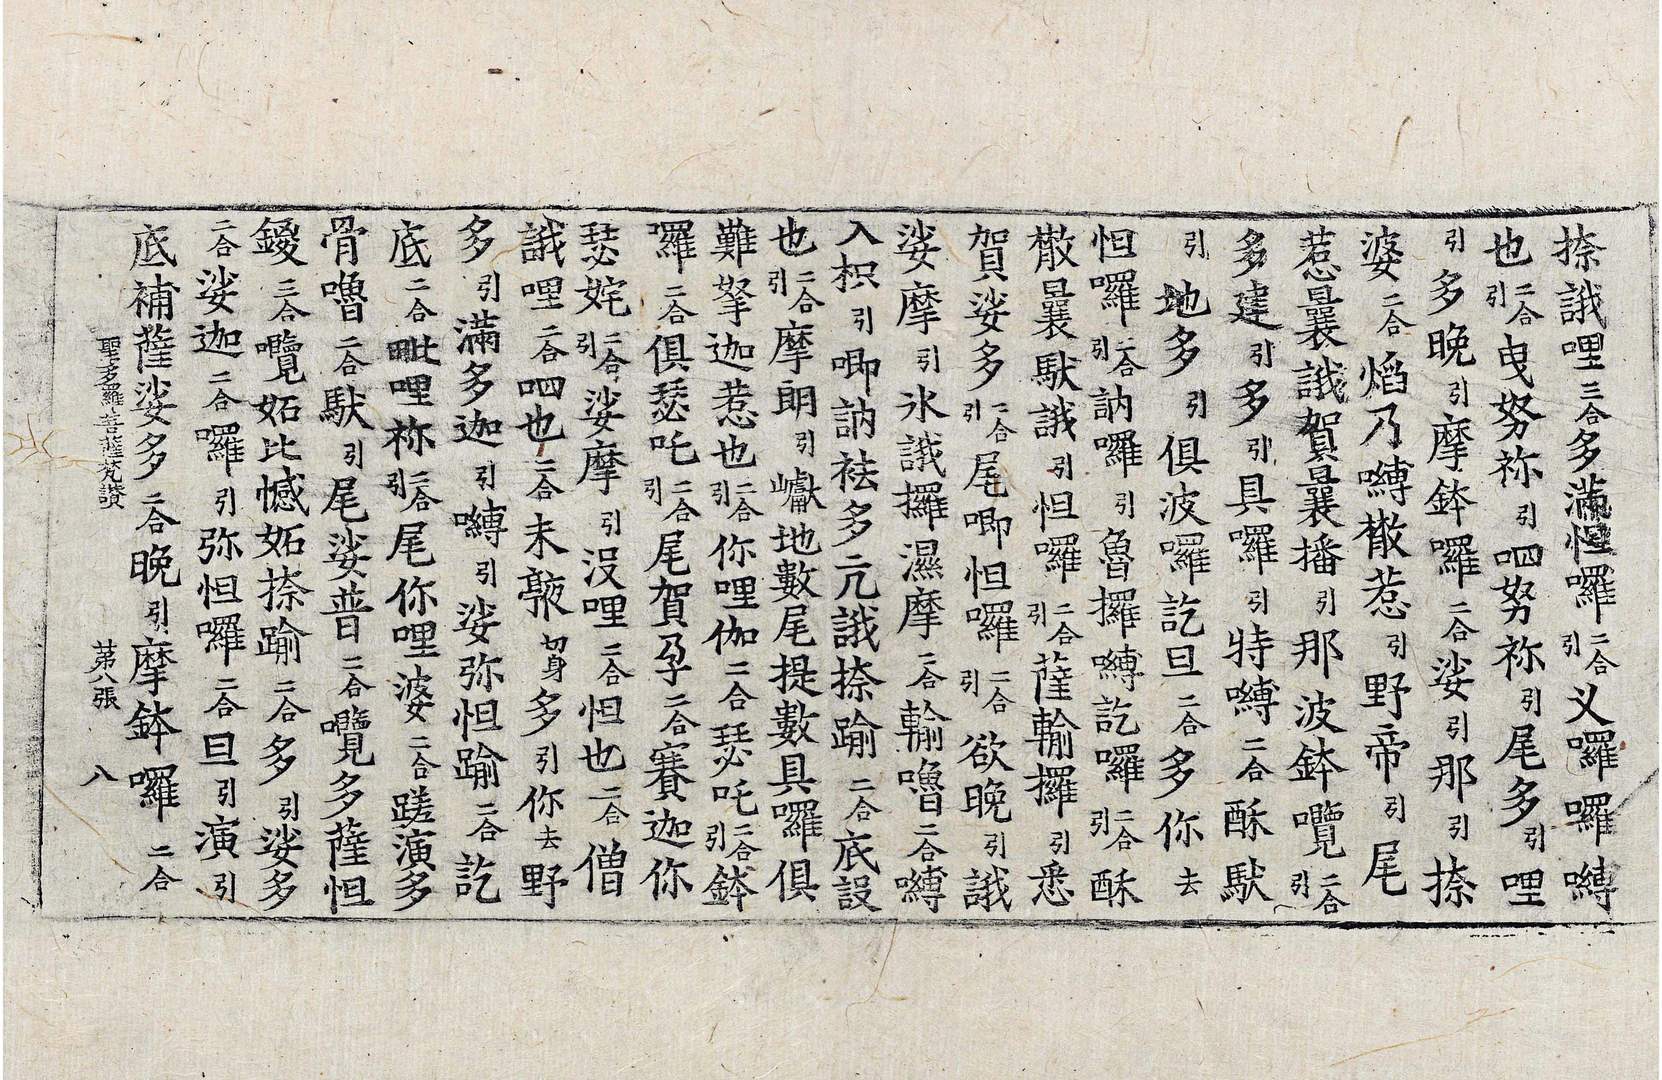 捺誐哩三合多滿怛囉二合引义囉囉嚩
也二合引曳努祢引呬努祢引尾多引哩
引多晚引摩鉢囉二合娑引那引捺
婆二合焰乃嚩橵惹引野帝引尾
惹曩誐賀曩播引那波鉢囕二合引
多建引多引具囉引特嚩二合酥馱
引地多引俱波囉訖旦二合多你去
怛囉二合引訥囉引魯攞嚩訖囉二合引酥
橵曩馱誐引怛囉二合引薩輸攞引悉
賀娑多二合引尾唧怛囉二合引欲晚引誐
娑摩引氷誐攞濕摩二合輸嚕二合嚩
入枳引唧訥袪多亢誐捺踰二合底設
也二合引摩朗引巘地數尾提數具囉俱
難拏迦惹也二合引你哩伽二合瑟吒二合引鉢
囉二合俱瑟吒二合引尾賀孕二合賽迦你
瑟姹二合引娑摩引沒哩二合怛也二合僧
誐哩二合呬也二合未㲉切身多引你去野
多引滿多迦引嚩引娑弥怛踰二合訖
底二合毗哩祢二合引尾你哩婆二合蹉演多
骨嚕二合馱引尾娑普二合囕多薩怛
鑁三合囕妬比憾妬捺踰二合多引娑多
二合娑迦二合囉引弥怛囉二合旦引演引
底補薩娑多二合晚引摩鉢囉二合
聖多羅菩薩梵讚　第八張　八